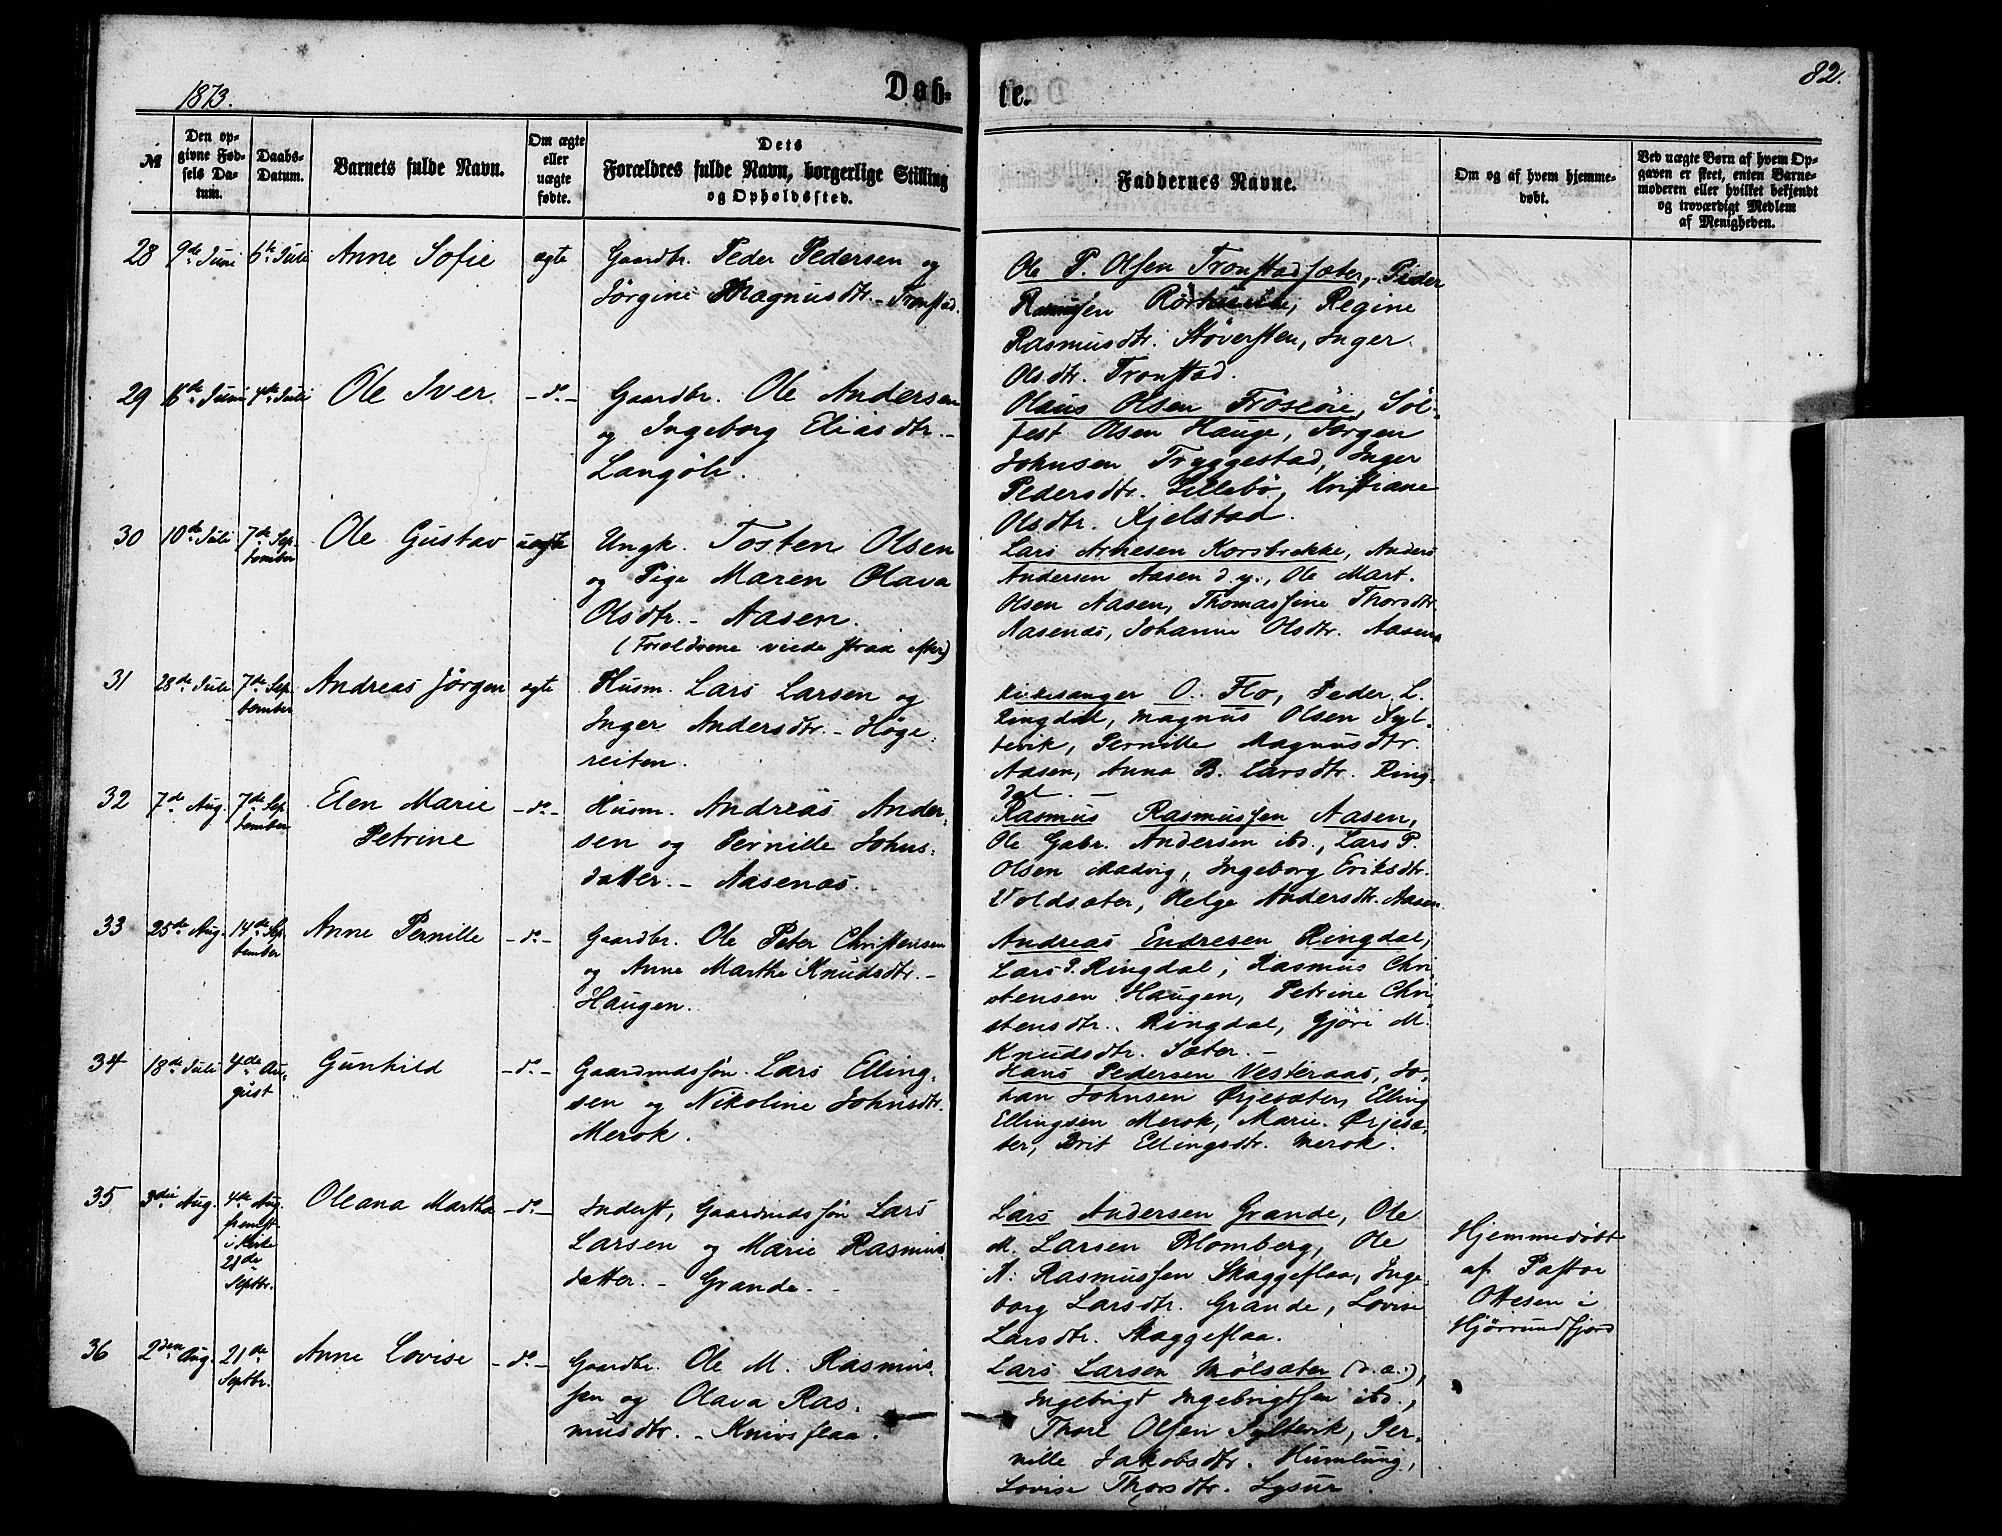 1873.
Daab-
te.
82.
№
Den op-
givne Fød-
sels Da-
tum.
Daabs-
Datum.
Barnets fulde Navn.
Om ægte
eller
uægte
fødte.
Dets
Forældres fulde Navn, borgerlige Stilling
og Opholdssted.
Faddernes Navne.
Om og af hvem hjemme-
døbt.
Ved uægte Børn af hvem Op-
gaven er skeet, enten Barne-
moderen eller hvilket bekjendt
og troværdigt Medlem
af Menigheden.
28 9de Juni 6te Juli Anne Sofie ægte
Gaardbr. Peder Pedersen og
Jørgine Magnusdtr. - Tronstad.
Ole P. Olsen Tronstadsæter, Peder
Rasmussen Regine
Rasmusdtr. Støversten, Inger
Olsdtr. Tronstad.
29 Juni Juli Ole Iver - do -
Gaardbr. Ole Andersen
og Ingeborg Eliasdtr. -
Langöli.
Olaus Olsen Sol-
fest Olsen Hauge, Jørgen
Johnsen Tryggestad, Inger
Pedersdtr. Lillebø, Kristiane
Olsdtr. Kjelstad.
30 10de Juli 7de Sep-
tember Ole Gustav uægte
Ungk. Tosten Olsen
og Pige Maren Olava
Olsdtr. - Aasen.
(Forældrene viede strax efter)
Lars Arnesen Korsbrekke, Anders
Andersen Aasen d.y., Ole Mart.
Olsen Aasen, Thomassine Thorsdtr.
Aasenæs, Johanne Olsdtr. Aasen
31 28de Juli 7de Sep-
tember Andreas Jörgen ægte
Husm. Lars Larsen og
Inger Andersdtr. - Höge-
reiten.
Kirkesanger O. Flo, Peder L.
Ringdal, Magnus Olsen Syl-
tevik, Pernille Magnusdtr.
Aasen, Anna B. Larsdtr. Ring-
dal. -
32 7de Aug. 7de Sep-
tember Elen Marie
Petrine - do -
Husm. Andreas Ander-
sen og Pernille Johns-
datter. - Aasenæs.
Rasmus Rasmussen Aasen,
Ole Gabr. Andersen ibd., Lars P.
Olsen Madvig, Ingeborg Eriksdtr.
Voldsæter, Helge Andersdtr. Aasen
33 25de Aug. 14de Sep-
tember Anne Pernille - do -
Gaardbr. Ole Peter Christensen
og Anne Marthe Knudsdtr. -
Haugen.
Andreas Endresen Ringdal,
Lars P. Ringdal, Rasmus Chri-
stensen Haugen, Petrine Chri-
stensdtr. Ringdal, Gjöri M.
Knudsdtr. Sæter. -
34 18de Juli 4de Au-
gust Gunhild - do -
Gaardmdssøn Lars Elling-
sen og Nikoline Johnsdtr.
Merok.
Hans Pedersen Vesteraas, Jo-
han Johnsen Ørjesæter, Elling
Ellingsen Merok, Marie Ørjesæ-
ter, Brit Ellingsdtr. Merok.
35 3die Aug. 4de Aug.
fremst.
i Kirke
21de
Septbr. Oleana Martha - do -
Inderst, Gaardmdssøn Lars
Larsen og Marie Rasmus-
datter. - Grande. -
Lars Andersen Grande, Ole
M. Larsen Blomberg, Ole
A. Rasmussen Skaggeflaa, Inge-
borg Larsdtr. Grande, Lovise
Larsdtr. Skaggeflaa.
Hjemmedöbt
af Pastor
Ottesen i
Hjörrundfjord
36 2den Aug. 21de
Septbr. Anne Lovise - do -
Gaardbr. Ole M. Rasmus-
sen og Olava Ras-
musdtr. - Knivsflaa.
Lars Larsen Mölsæter (d.æ.),
Ingebrigt Ingebrigtsen ibd.,
Thore Olsen Syltevik, Per-
nille Jakobsdtr. Humlung,
Lovise Thorsdtr. Lysur.